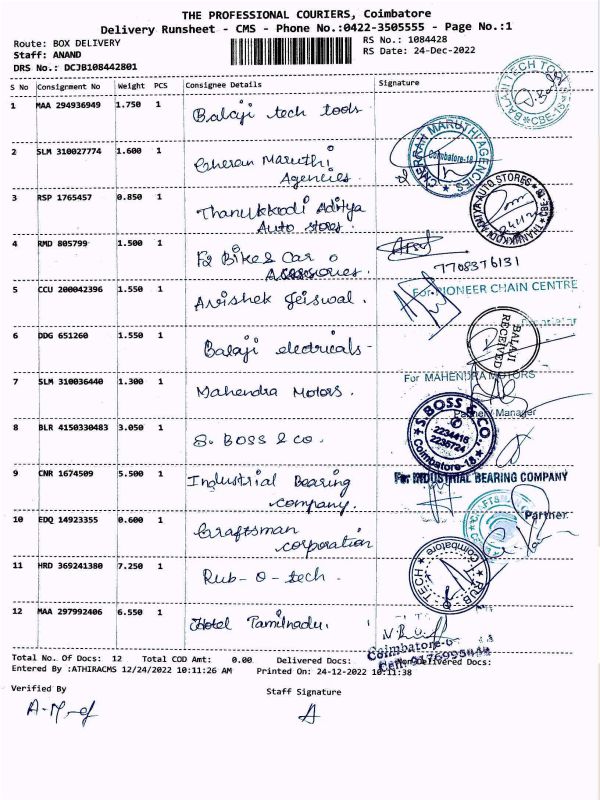 THE PROFESSIONAL COURIERS, Coimbatore
Delivery Runsheet - CMS - Phone No.:0422-3505555 - Page No.:1
Route: BOX DELIVERY
RS No.: 1084428
Staff: ANAND
RS Date: 24-Dec-2022
DRS No.: DCJB108442801
S No Consignment No Weight PCS Consignee Details Signature
BALAJI TECH TOOLS CBE-18
1 MAA 294936949 1.750 1 Balaji tech tools
2 SLM 310027774 1.600 1 Cheran Maruthi
Agencies.
CHERRAN MARUTHI AGENCIES Coimbatore-18
3 RSP 1765457 0.850 1 Thanukkodi Aditya
Auto stores.
AUTO STORES CBE
4 RMD 805799 1.500 1 F2 Bike & Car
Accessories.
7708376131
5 CCU 200042396 1.550 1 Avishek Jeiswal.
For PIONEER CHAIN CENTRE
6 DDG 651260 1.550 1 Balaji electricals
BALAJI
RECEIVED
7 SLM 310036440 1.300 1 Mahendra Motors.
For MAHENDRA MOTORS
Manager
8 BLR 4150330483 3.050 1 S. BOSS & co.
S. BOSS & CO.
2234416
2236724
Coimbatore-18
9 CNR 1674509 5.500 1 Industrial Bearing
company.
For INDUSTRIAL BEARING COMPANY
Partner
10 EDQ 14923355 0.600 1 Craftsman
corporation
11 HRD 369241380 7.250 1 Rub-O-tech.
RUB-O-TECH Coimbatore
12 MAA 297992406 6.550 1 Hotel Tamilnadu.
Coimbatore
Total No. Of Docs: 12 Total COD Amt: 0.00 Delivered Docs: Non Delivered Docs:
Entered By :ATHIRACMS 12/24/2022 10:11:26 AM Printed On: 24-12-2022 10:11:38
Verified By
Staff Signature